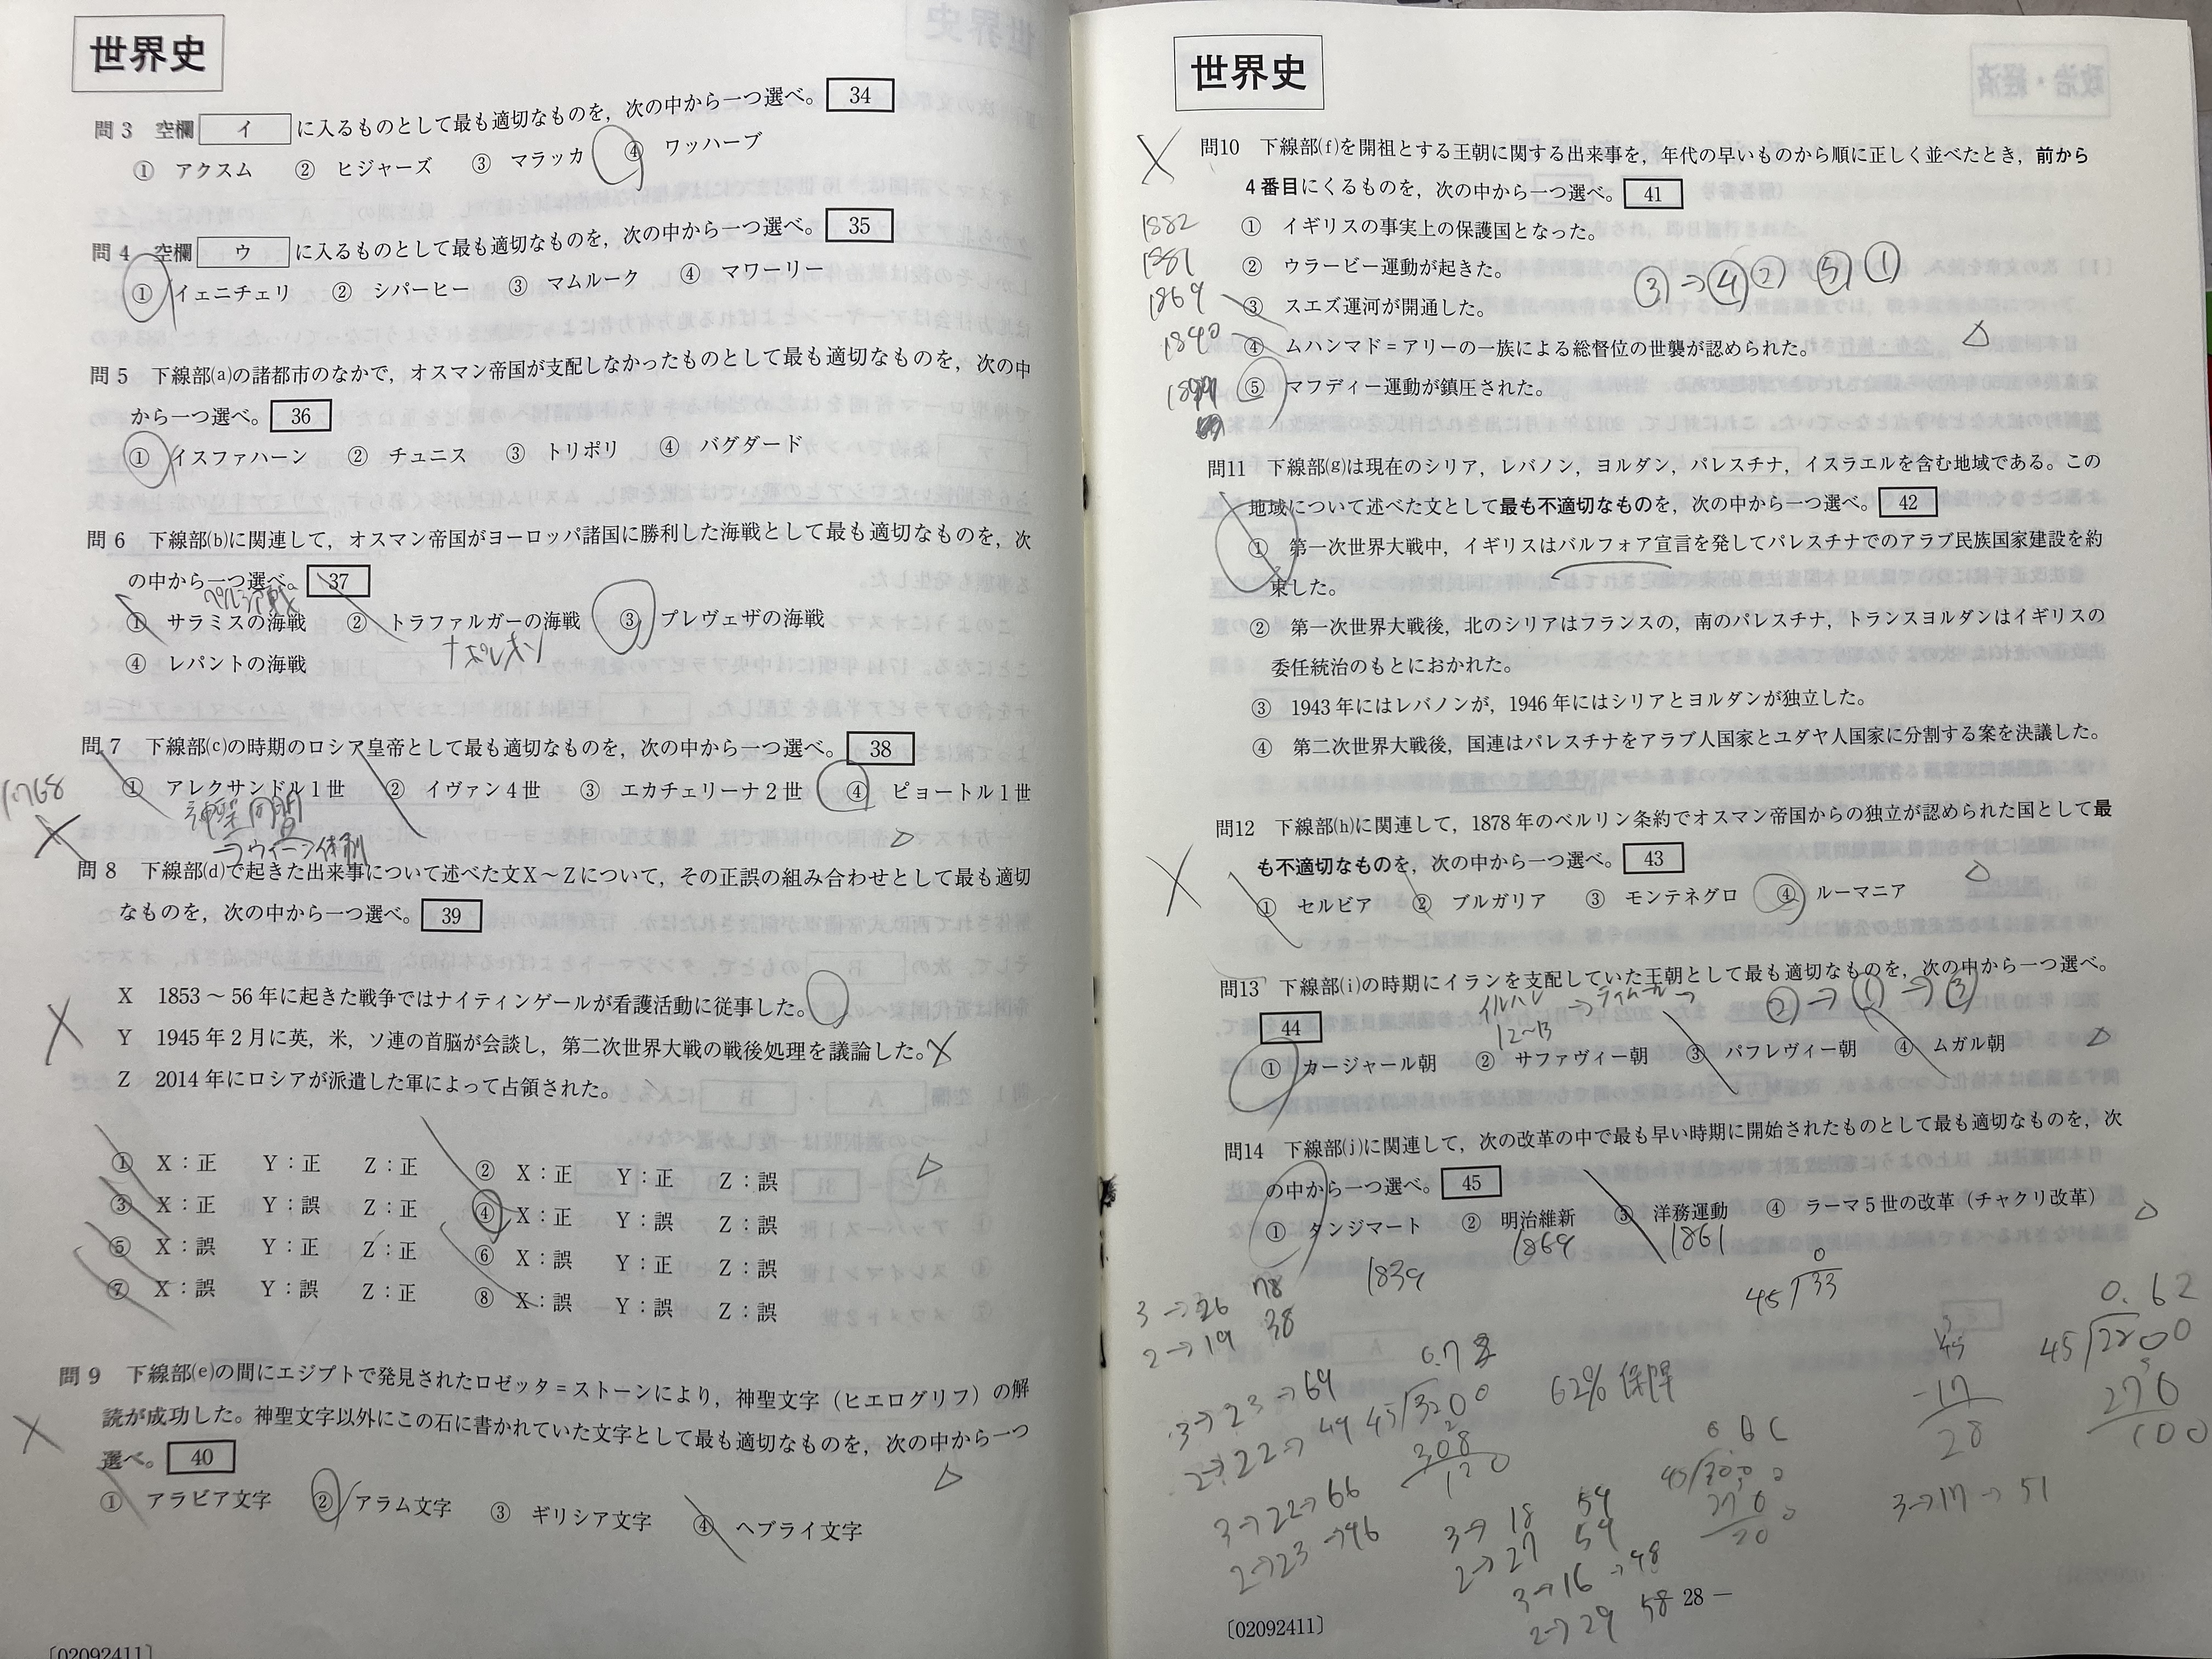 世界史
問3 空欄 イ に入るものとして最も適切なものを，次の中から一つ選べ。 34
① アクスム ② ヒジャーズ ③ マラッカ ④ ワッハーブ
問4 空欄 ウ に入るものとして最も適切なものを，次の中から一つ選べ。 35
① イェニチェリ ② シパーヒー ③ マムルーク ④ マワーリー
問5 下線部(a)の諸都市のなかで，オスマン帝国が支配しなかったものとして最も適切なものを，次の中
から一つ選べ。 36
① イスファハーン ② チュニス ③ トリポリ ④ バグダード
問6 下線部(b)に関連して，オスマン帝国がヨーロッパ諸国に勝利した海戦として最も適切なものを，次
の中から一つ選べ。 37
① サラミスの海戦 ② トラファルガーの海戦 ③ プレヴェザの海戦
ナポレオン
④ レパントの海戦
問7 下線部(c)の時期のロシア皇帝として最も適切なものを，次の中から一つ選べ。 38
① アレクサンドル1世 ② イヴァン4世 ③ エカチェリーナ2世 ④ ピョートル1世
神聖同盟
→ウィーン体制
問8 下線部(d)で起きた出来事について述べた文X～Zについて，その正誤の組み合わせとして最も適切
なものを，次の中から一つ選べ。 39
X 1853～56年に起きた戦争ではナイティンゲールが看護活動に従事した。
Y 1945年2月に英，米，ソ連の首脳が会談し，第二次世界大戦の戦後処理を議論した。
Z 2014年にロシアが派遣した軍によって占領された。
① X：正 Y：正 Z：正 ② X：正 Y：正 Z：誤
③ X：正 Y：誤 Z：正 ④ X：正 Y：誤 Z：誤
⑤ X：誤 Y：正 Z：正 ⑥ X：誤 Y：正 Z：誤
⑦ X：誤 Y：誤 Z：正 ⑧ X：誤 Y：誤 Z：誤
問9 下線部(e)の間にエジプトで発見されたロゼッタ＝ストーンにより，神聖文字（ヒエログリフ）の解
読が成功した。神聖文字以外にこの石に書かれていた文字として最も適切なものを，次の中から一つ
選べ。 40
① アラビア文字 ② アラム文字 ③ ギリシア文字 ④ ヘブライ文字
〔02092411〕
世界史
問10 下線部(f)を開祖とする王朝に関する出来事を，年代の早いものから順に正しく並べたとき，前から
4番目にくるものを，次の中から一つ選べ。 41
1882 ① イギリスの事実上の保護国となった。
1881 ② ウラービー運動が起きた。
③→④② ⑤ ①
1869 ③ スエズ運河が開通した。
1840 ④ ムハンマド＝アリーの一族による総督位の世襲が認められた。
⑤ マフディー運動が鎮圧された。
問11 下線部(g)は現在のシリア，レバノン，ヨルダン，パレスチナ，イスラエルを含む地域である。この
地域について述べた文として最も不適切なものを，次の中から一つ選べ。 42
① 第一次世界大戦中，イギリスはバルフォア宣言を発してパレスチナでのアラブ民族国家建設を約
束した。
② 第一次世界大戦後，北のシリアはフランスの，南のパレスチナ，トランスヨルダンはイギリスの
委任統治のもとにおかれた。
③ 1943年にはレバノンが，1946年にはシリアとヨルダンが独立した。
④ 第二次世界大戦後，国連はパレスチナをアラブ人国家とユダヤ人国家に分割する案を決議した。
問12 下線部(h)に関連して，1878年のベルリン条約でオスマン帝国からの独立が認められた国として最
も不適切なものを，次の中から一つ選べ。 43
① セルビア ② ブルガリア ③ モンテネグロ ④ ルーマニア
問13 下線部(i)の時期にイランを支配していた王朝として最も適切なものを，次の中から一つ選べ。
イルハン → ティムール → ②→①→③
44
12～13
① カージャール朝 ② サファヴィー朝 ③ パフレヴィー朝 ④ ムガル朝
問14 下線部(j)に関連して，次の改革の中で最も早い時期に開始されたものとして最も適切なものを，次
の中から一つ選べ。 45
① タンジマート ② 明治維新 ③ 洋務運動 ④ ラーマ5世の改革（チャクリ改革）
1839 1869 1861
3→26 78
2→19 38
45 33
0.62
45 2200
270
100
3→23→69
45 3200
62% 保障
45
-17
28
3→22→66
2→23→46
3→18 54
2→27 54
3→17→51
3→16→48
2→29 58
28 —
〔02092411〕